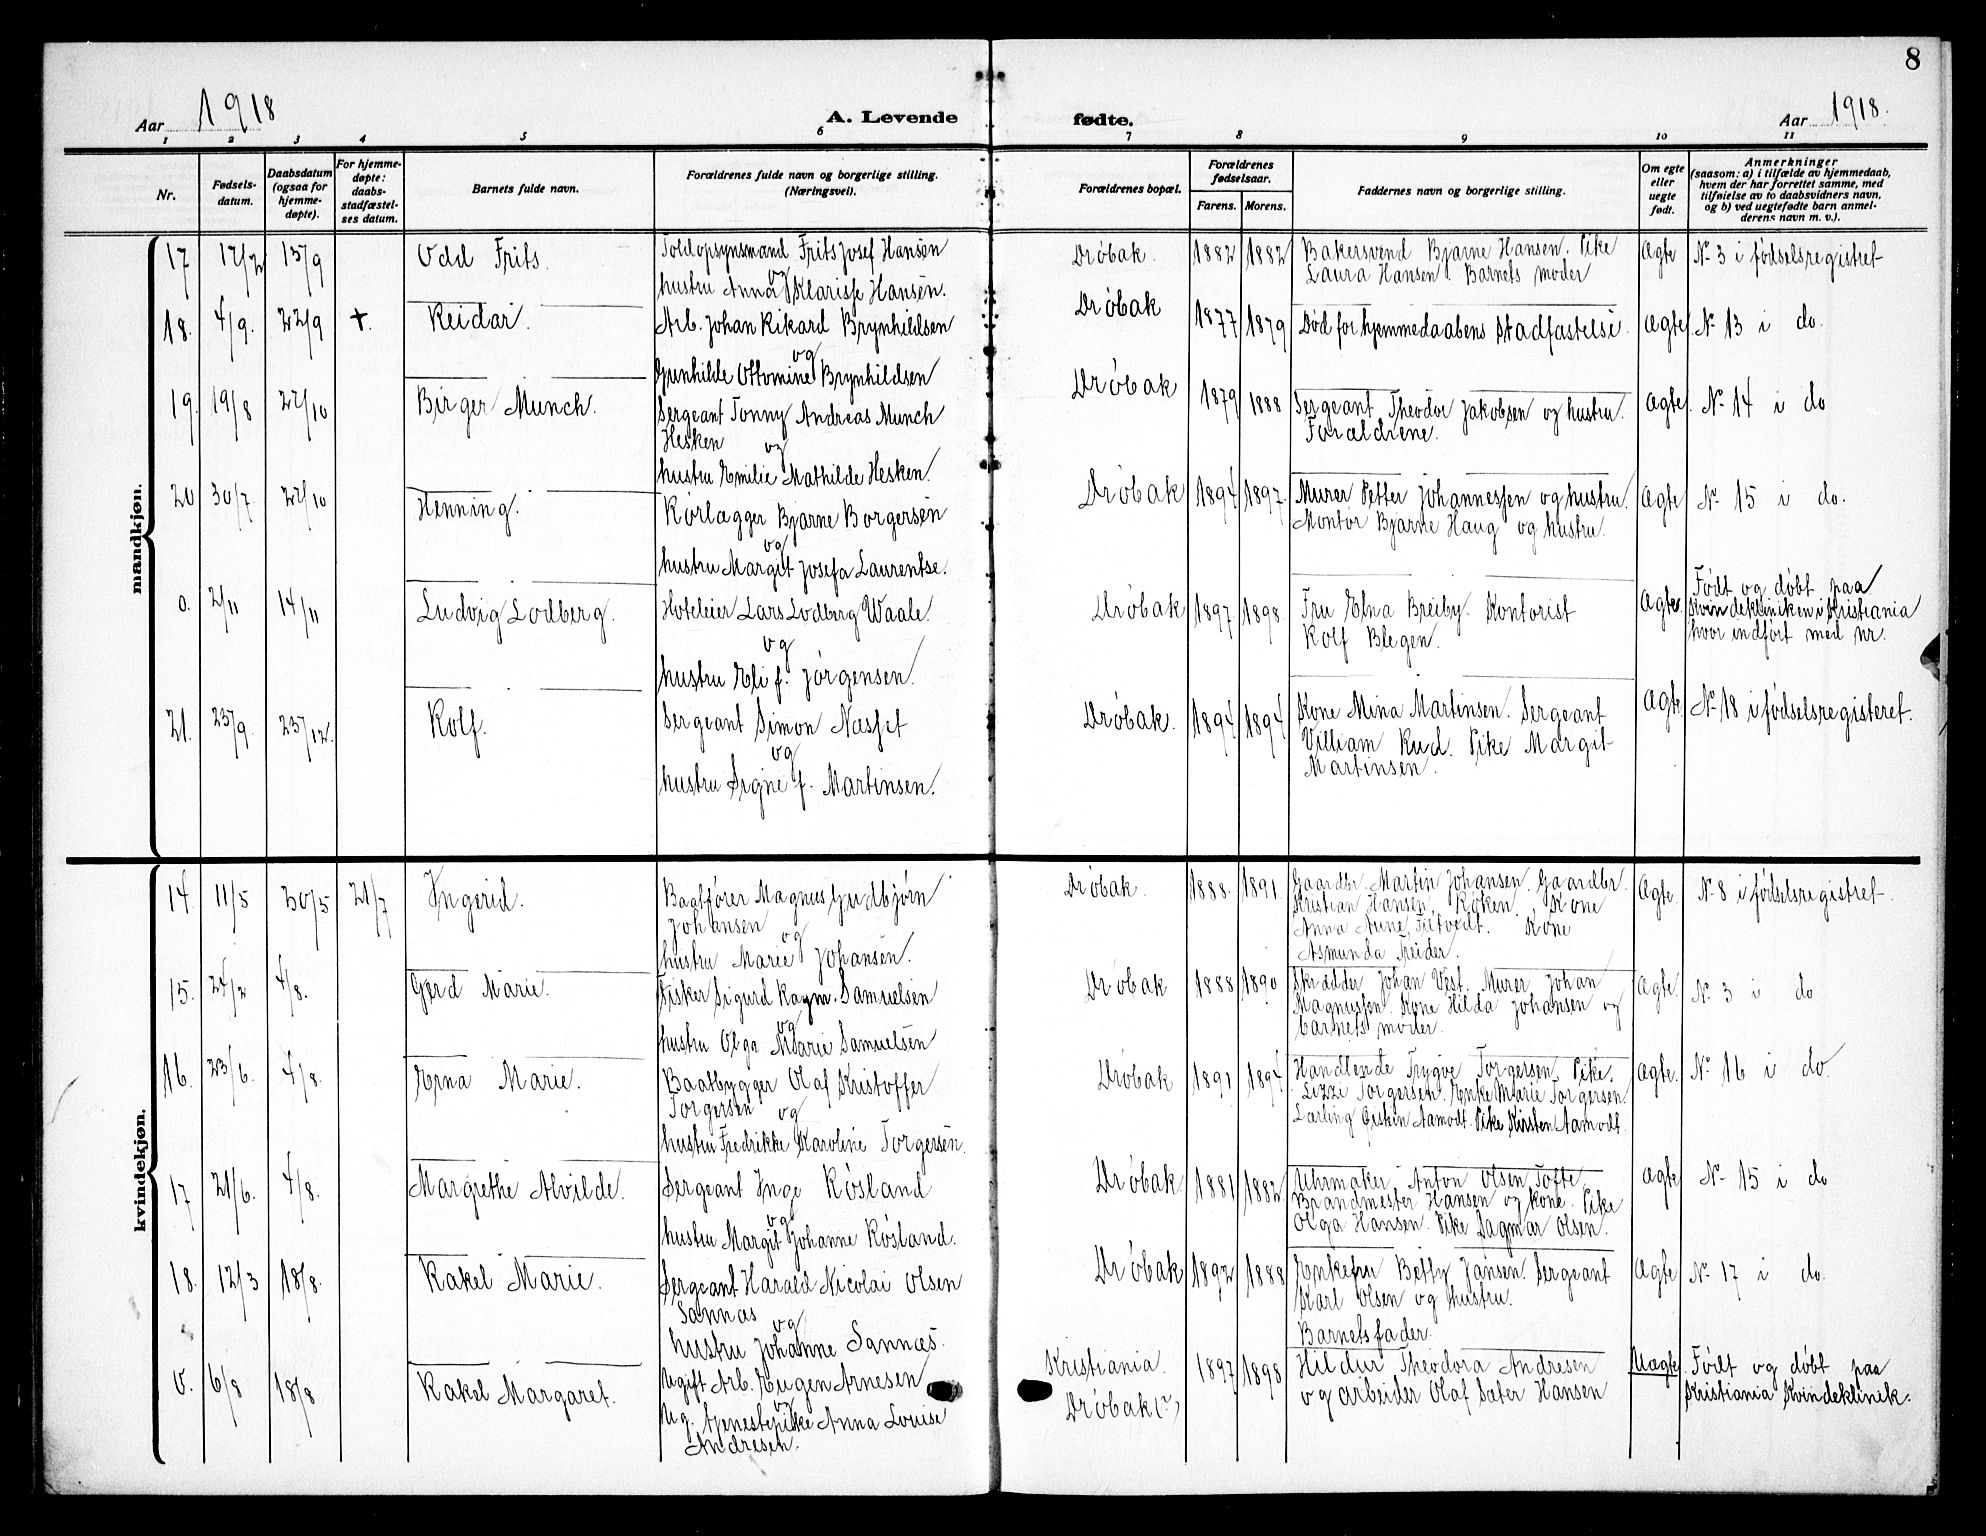 8
Aar 1918
A. Levende
fødte.
Aar 1918.
1 2 3 4 5 6 7 8 9 10 11
Nr.
Fødsels-
datum.
Daabsdatum
(ogsaa for
hjemme-
døpte).
For hjemme-
døpte:
daabs-
stadfæstel-
ses datum.
Barnets fulde navn.
Forældrenes fulde navn og borgerlige stilling.
(Næringsvei).
Forældrenes bopæl.
Forældrenes
fødselsaar.
Farens. Morens.
Faddernes navn og borgerlige stilling.
Om egte
eller
uegte
født.
Anmerkninger
(saasom: a) i tilfælde av hjemmedaab,
hvem der har forrettet samme, med
tilføielse av to daabsvidners navn,
og b) ved uegtefødte barn anmel-
derens navn m. v.).
mandkjøn.
17 12/2 15/9 Odd Frits.
Toldopsynsmand Frits Josef Hansen
og
hustru Anna Klarisse Hansen.
Drøbak. 1882 1882
Bakersvend Bjarne Hansen. Pike
Laura Hansen. Barnets moder
Ægte
No 3 i fødselsregistret
18. 4/9. 22/9 +. Reidar.
Arb. Johan Rikard Brynhildsen
og
Gunhilde Ottomine Brynhildsen
Drøbak 1877 1879
Død for hjemmedaabens stadfæstelse.
Ægte
No 13 i do.
19. 19/8 27/10 Birger Munch.
Sergeant Tonny Andreas Munch
Hesken
og
hustru Emilie Mathilde Hesken.
Drøbak 1879 1888
Sergeant Theodor Jakobsen og hustru.
Forældrene.
Ægte
No 14 i do
20 30/7. 27/10 Henning.
Rørlægger Bjarne Borgersen
og
hustru Margit Josefa Laurentse.
Drøbak 1894 1897.
Murer Petter Johannessen og hustru.
Montør Bjarne Haug og hustru.
Ægte
No 15 i do.
0. 2/11 14/11 Ludvig Lodberg.
Hoteleier Lars Lodberg Waale.
og
hustru Eli f. Jørgensen.
Drøbak 1897. 1898.
Fru Edna Breiby. Kontorist
Rolf Blegen.
Ægte
Født og døbt paa
Kvindeklinikken i Kristiania
hvor indført med nr.
21. 25/9. 25/12. Rolf.
Sergeant Simon Næsset
og
hustru Signe f. Martinsen.
Drøbak. 1894 1894
Kone Mina Martinsen. Sergeant
William Rud. Pike Margit
Martinsen.
Ægte
No 18 i fødselsregisteret.
kvindekjøn.
14. 11/5 30/5 21/7 Ingerid.
Baatfører Magnus Gudbjørn
Johansen
og
hustru Marie Johansen.
Drøbak. 1888. 1891
Gaardbr. Martin Johansen. Gaardbr.
Kristian Hansen, Røken. Kone
Anna Aune, Tiltvedt. Kone
Asmunda Treider.
Ægte.
No 8 i fødselsregistret.
15. 24/2 4/8. Gerd Marie.
Fisker Sigurd Raym. Samuelsen
og
hustru Olga Marie Samuelsen
Drøbak 1888 1890
Skrædder Johan Vest. Murer Johan
Magnussen. Kone Hilda Johansen og
barnets moder.
Ægte.
No 3 i do
16. 23/6. 4/8. Erna Marie.
Baatbygger Olaf Kristoffer
Torgersen
og
hustru Fredrikke Karoline Torgersen.
Drøbak 1891 1894
Handlende Trygve Torgersen. Pike.
Lizzi Torgersen. Enke Marie Torgersen.
Lærling Eisken Aamodt. Pike Kirsten Aamodt.
Ægte.
No 16 i do.
17 21/6. 4/8. Margrethe Alvilde.
Sergeant Inge Røsland
og
hustru Margit Johanne Røsland.
Drøbak 1881 1882
Uhrmaker Anton Olsen Tofte.
Brandmester Hansen og kone. Pike
Olga Hansen. Pike Dagmar Olsen.
Ægte
No 15 i do
18. 12/3 18/8. Rakel Marie.
Sergeant Harald Nicolai Olsen
Sannæs
og
hustru Johanne Sannæs.
Drøbak 1892 1888
Enkefru Betty Jansen. Sergeant
Karl Olsen og hustru.
Barnets fader.
Ægte
No 17 i do.
0. 6/8 18/8 Rakel Margaret.
Ugift Arb. Eugen Arnesen
og
Ug. tjenestepike Anna Lovise
Andresen.
Kristiania.
Drøbak (?)
1897 1898
Hildur Theodora Andresen
og arbeider Olaf Sæter Hansen
Uægte
Født og døbt paa
Kristiania Kvindeklinik.